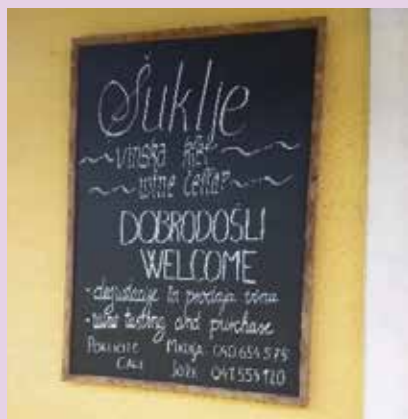 Šuklje
vinska klet
wine cellar
DOBRODOŠLI
WELCOME
- degustacije in prodaja vina
- wine tasting and purchase
POKLIČITE MATIJA 040 654 575
CALL JOŽE 041 554 120